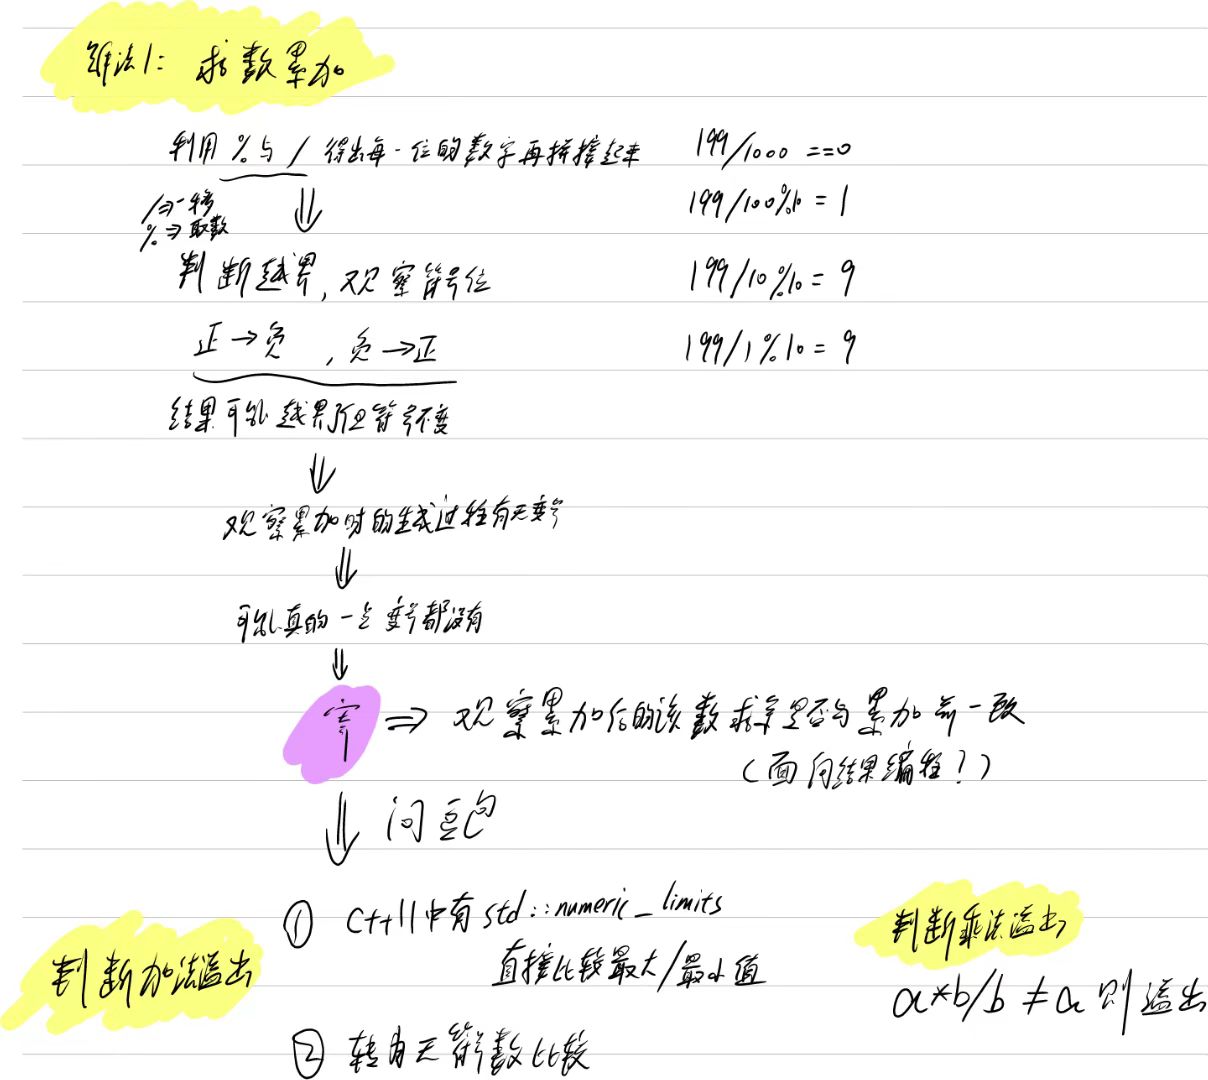 算法1: 求数累加
利用 % 与 / 得出每一位的数字再拼接起来
199/1000 ==0
/⇒移
199/100%10 = 1
%⇒取数
判断越界,观察符号位
199/10%10 = 9
正→负 ,负→正
199/1%10 = 9
结果可能越界了但符号不变
观察累加时的生成过程有无变号
可能真的一点变号都没有
寄 ⇒ 观察累加后的该数求余是否与累加前一致
(面向结果编程?)
问豆包
① C++11中有std::numeric_limits
直接比较最大/最小值
判断加法溢出
判断乘法溢出
a*b/b ≠ a 则溢出
② 转为无符号数比较